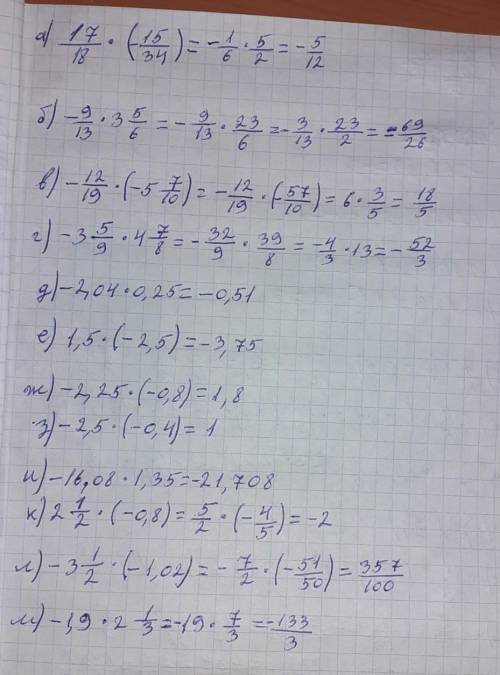 а) 17/18 · (-15/34) = -1/6 · 5/2 = -5/12
б) -9/13 · 3 5/6 = -9/13 · 23/6 = -3/13 · 23/2 = -69/26
в) -12/19 · (-5 7/10) = -12/19 · (-57/10) = 6 · 3/5 = 18/5
г) -3 5/9 · 4 7/8 = -32/9 · 39/8 = -4/3 · 13 = -52/3
д) -2,04 · 0,25 = -0,51
е) 1,5 · (-2,5) = -3,75
ж) -2,25 · (-0,8) = 1,8
з) -2,5 · (-0,4) = 1
и) -16,08 · 1,35 = -21,708
к) 2 1/2 · (-0,8) = 5/2 · (-4/5) = -2
л) -3 1/2 · (-1,02) = -7/2 · (-51/50) = 357/100
м) -1,9 · 2 1/3 = -1,9 · 7/3 = -133/3